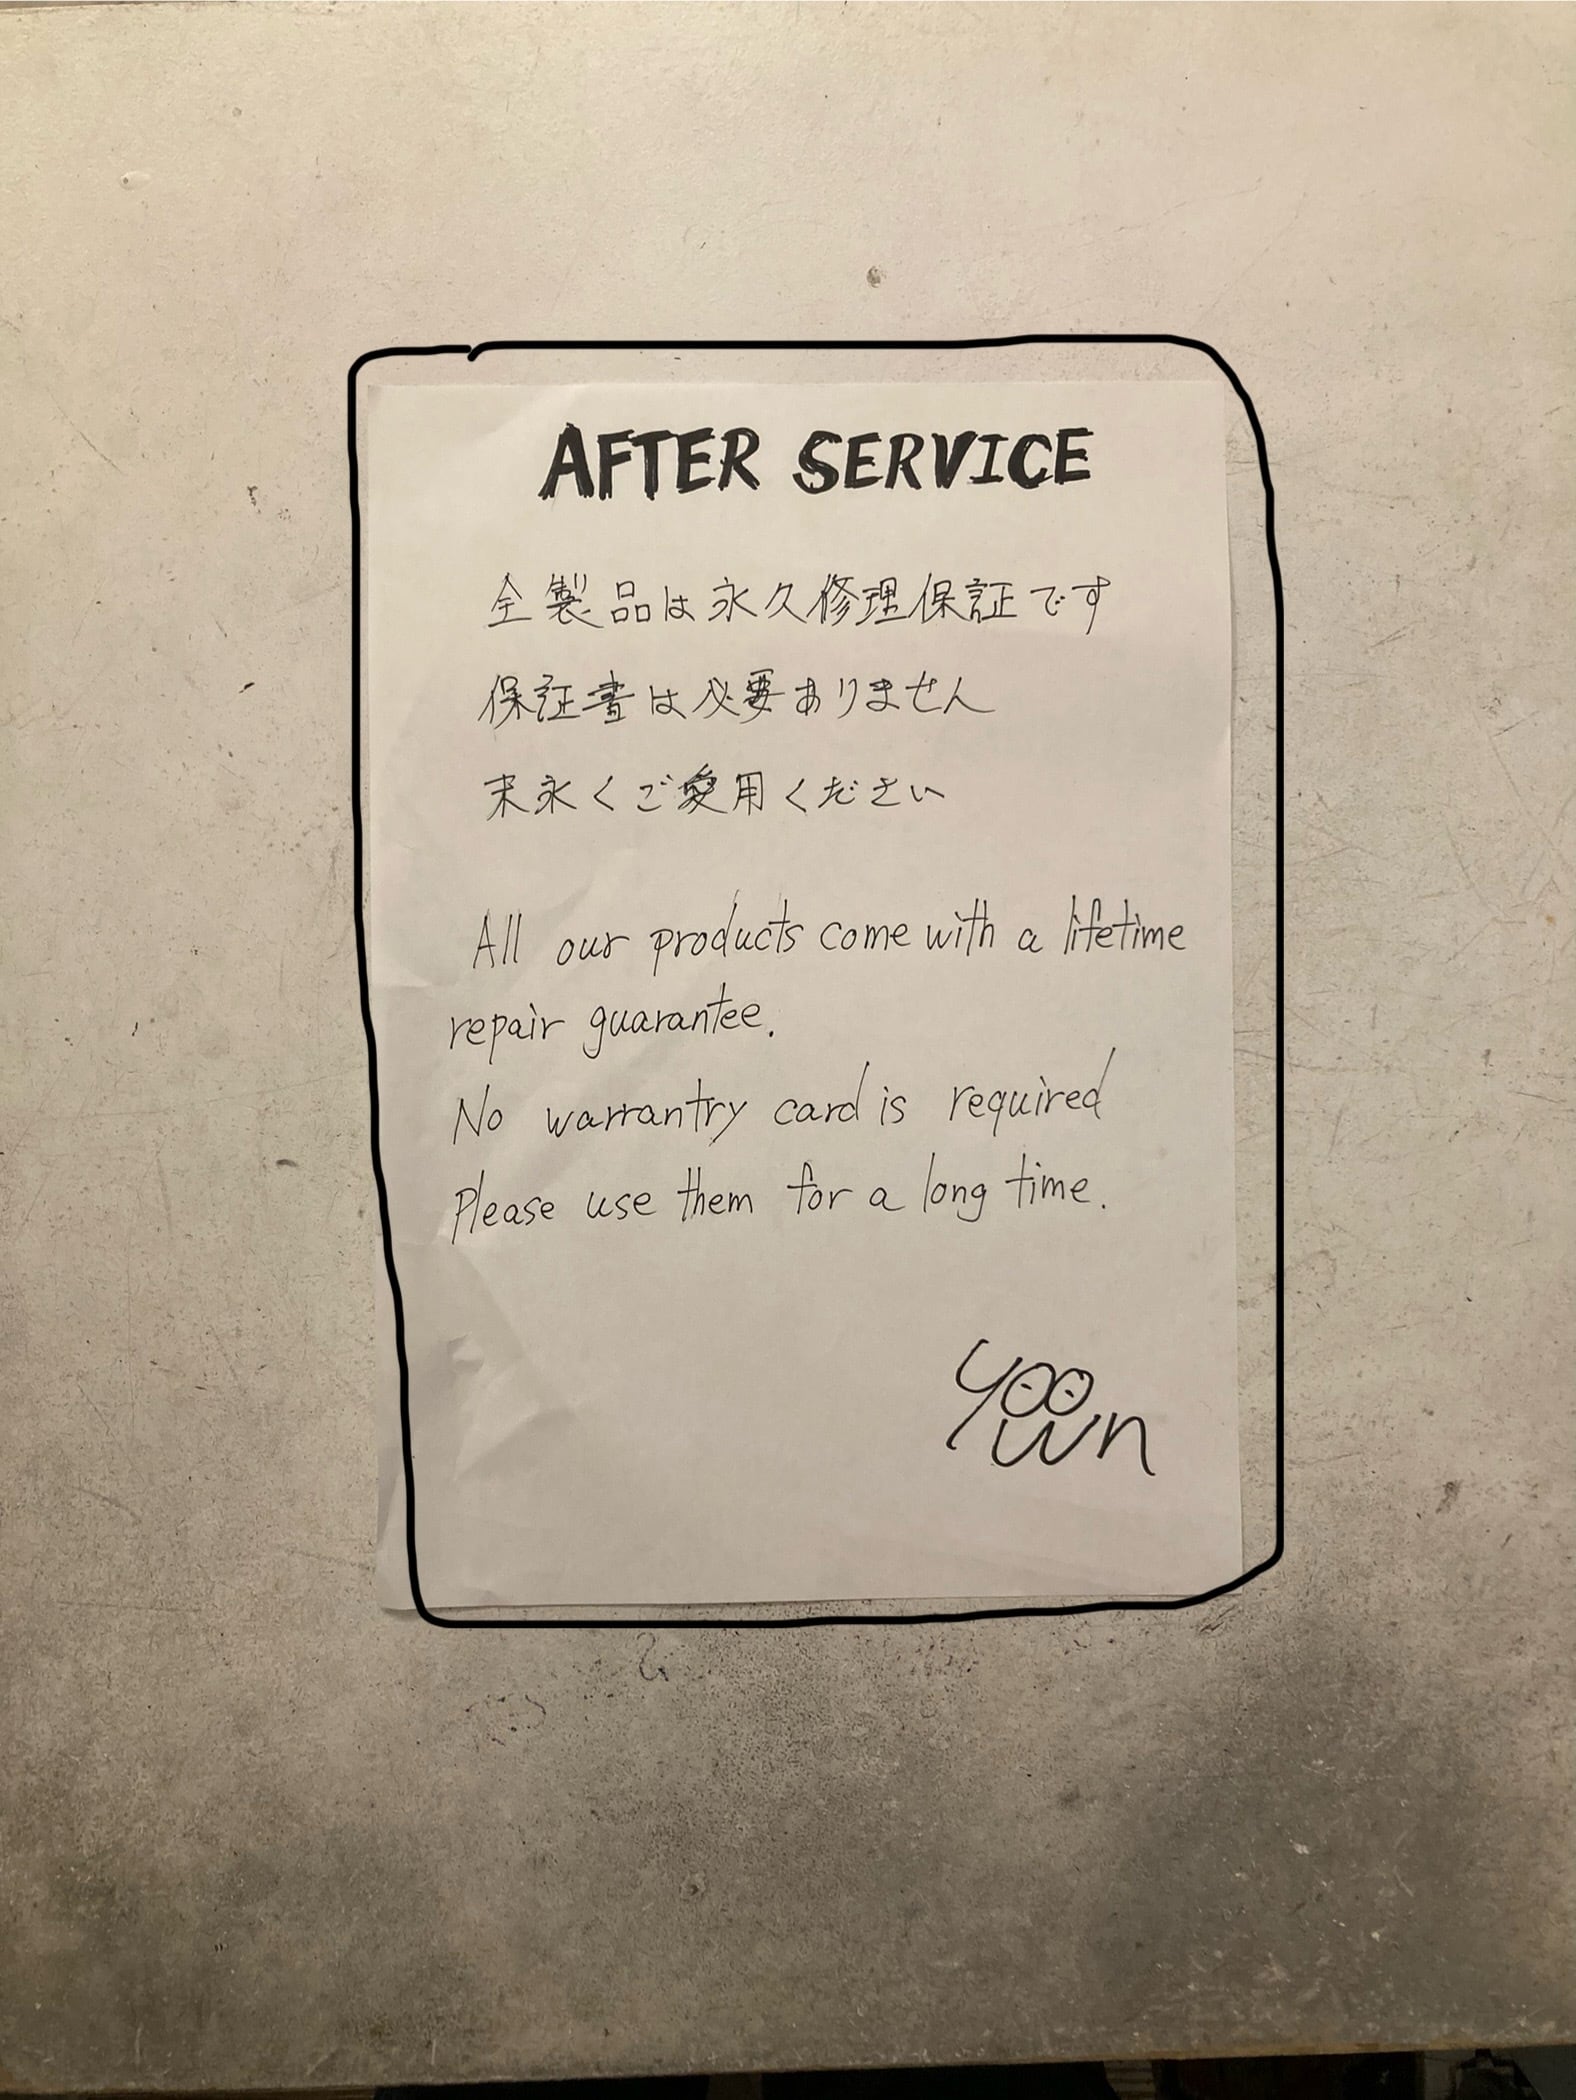 AFTER SERVICE
全製品は永久修理保証です
保証書は必要ありません
末永くご愛用ください
All our products come with a lifetime
repair guarantee.
No warrantry card is required
Please use them for a long time.
yoo
wn